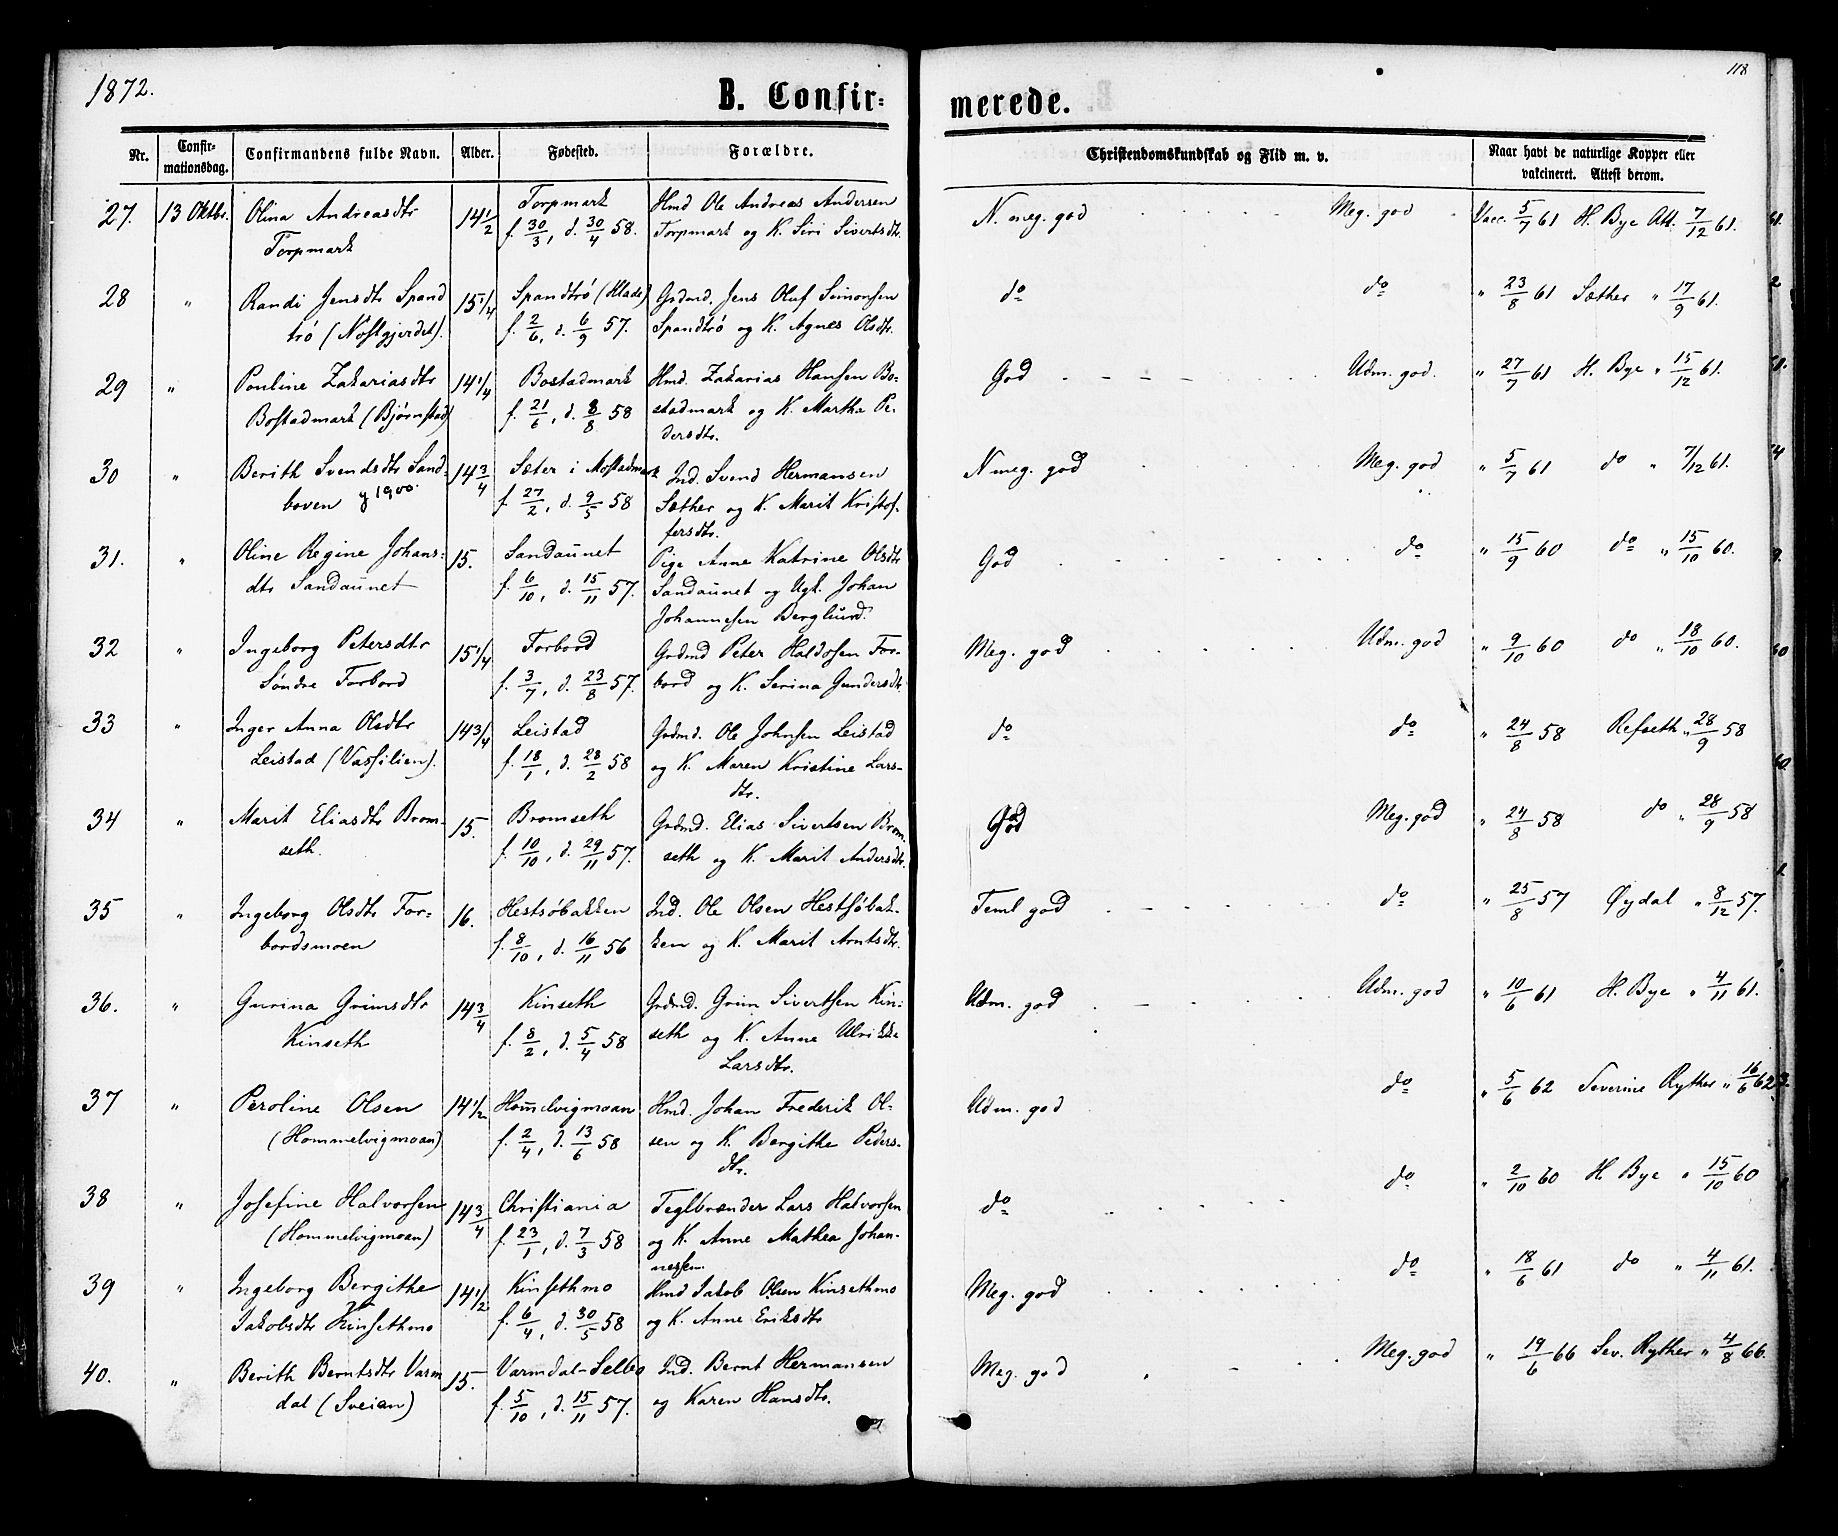 1872.
B. Confir=
merede.
118
Nr.
Confir-
mationsdag.
Confirmandens fulde Navn.
Alder.
Fødested.
Forældre.
Christendomskundskab og Flid m. v.
Naar havt de naturlige Kopper eller
vakcineret. Attest derom.
27. 13 Oktbr. Olina Andreasdtr 14 1/2 Torpmark Hmd Ole Andreas Andersen N. meg. god Meg. god Vacc. 5/7 61 H. Bye Att. 7/12 61.
Torpmark f. 30/3, d. 30/4 58. Torpmark og K. Siri Sivertsdtr.
28 " Randi Jensdtr Spand 15 1/4 Spandtrö (Klade) Grdmd. Jens Oluf Simonsen do do " 23/8 61 Sæther " 17/9 61.
trö (Nöstgjerdet). f. 2/6, d. 6/9 57. Spandtrö og K. Agnes Olsdtr.
29 " Pouline Zakariasdtr 14 1/4 Bostadmark Hmd. Zakarias Hansen Bo- God Udm. god. " 27/7 61 H. Bye " 15/12 61.
Bostadmark (Bjørnstad) f. 21/6, d. 8/8 58 stadmark og K. Martha Pe-
dersdtr.
30 " Berith Svendsdtr Sand- 14 3/4 Sæter i Mostadmark Ind. Svend Hermansen N meg. god Meg. god " 5/7 61 do " 7/12 61.
boven g 1900. f. 27/2, d. 9/5 58 Sæther og K. Marit Kristof-
fersdtr.
31. " Oline Regine Johans- 15. Sandaunet Pige Anne Katrine Olsdtr God do " 15/9 60 do " 15/10 60.
dtr Sandaunet f. 6/10, d. 15/11 57. Sandaunet og Ugk. Johan
Johannesen Berglund.
32 " Ingeborg Petersdtr 15 1/4 Forbord Grdmd Peter Haldosen For- Meg. god Udm. god " 9/10 60 do " 18/10 60.
Söndre Forbord f. 3/7, d. 23/8 57. bord og K. Serina Gundersdtr.
33 " Inger Anna Olsdtr 14 3/4 Leistad Grdmd. Ole Johnsen Leistad do do " 24/8 58 Refseth " 28/9 58
Leistad (Vassilien). f. 18/1, d. 28/2 58 og K. Maren Kristine Lars-
dtr.
34 " Marit Eliasdtr Brom- 15. Bromseth Grdmd. Elias Sivertsen Brom God Meg. god " 24/8 58 do " 28/9 58
seth. f. 10/10, d. 29/11 57. seth og K. Marit Andersdtr.
35 " Ingeborg Olsdtr For- 16. Hestsöbakken Ind. Ole Olsen Hestsöbak- Teml god do " 25/8 57 Øydal " 8/12 57.
bordsmoen f. 8/10, d. 16/11 56 ken og K. Marit Arntsdtr.
36. " Gurina Grimsdtr 14 3/4 Kinseth Grdmd. Grim Sivertsen Kin- Udm. god Udm. god " 10/6 61 H. Bye " 4/11 61.
Kinseth f. 8/2, d. 5/4 58 seth og K. Anne Ulrikke
Larsdtr.
37 " Peroline Olsen 14 1/2 Hommelvigmoan Hmd. Johan Frederik Ol- Udm. god do " 5/6 62 Severine Ryther " 16/6 62
(Hommelvigmoan) f. 2/4, d. 13/6 58 sen og K. Bergithe Peders-
dtr.
38 " Josefine Halvorsen 14 3/4 Christiania Teglbrænder Lars Halvorsen do do " 2/10 60 H. Bye " 15/10 60
(Hommelvigmoan) f. 23/1, d. 7/3 58 og K. Anne Mathea Johan-
nessen.
39 " Ingeborg Bergithe 14 1/2 Kinsethmo Hmd Jakob Olsen Kinsethmo Meg. god do " 18/6 61 do " 4/11 61.
Jakobsdtr Kinsethmo f. 6/4, d. 30/5 58 og K. Anne Eriksdtr
40. " Berith Berntsdtr Varm 15. Varmdal-Selbo Ind. Bernt Hermansen Meg. god Meg. god " 19/6 66 Sev. Ryther " 4/8 66.
dal (Sveian) f. 5/10, d. 15/11 57. og Karen Hansdtr.